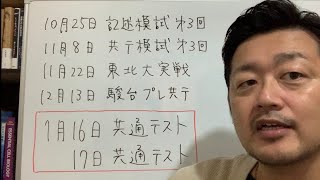 10月25日 記述模試 第3回
11月8日 共テ模試 第3回
11月22日 東北大実戦
12月13日 駿台プレ共テ
1月16日 共通テスト
17日 共通テスト
ESSENTIAL CELL BIOLOGY